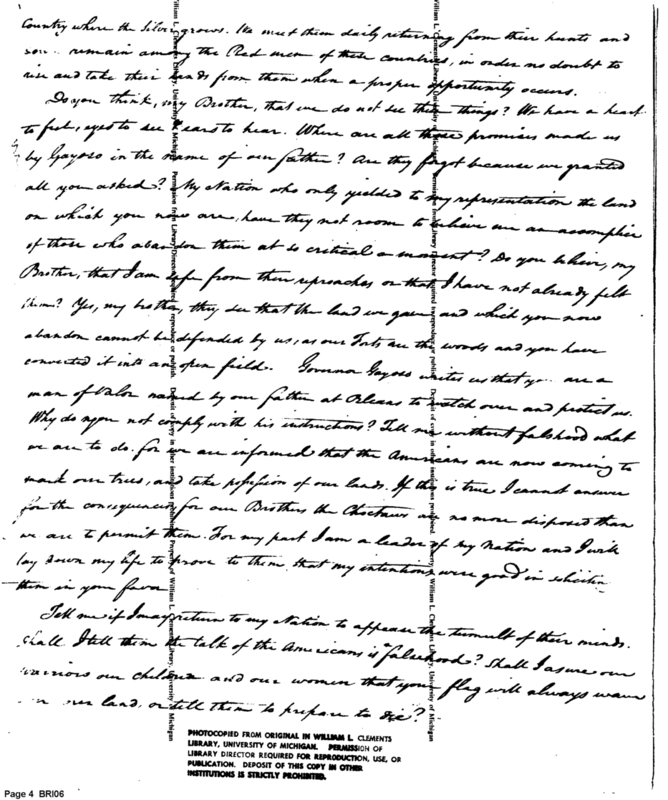 Country where the Silver grows. We meet them daily returning from their hunts and
remain among the Red men of these countries, in order no doubt to
rise and take their lands from them when a proper opportunity occurs.
Do you think, my Brother, that we do not see these things? We have a heart
to feel, eyes to see & ears to hear. Where are all those promises made us
by Gayoso in the name of our father? Are they forgot because we granted
all you asked? My Nation who only yielded to my representation the land
on which you now are, have they not room to believe me an accomplice
of those who abandon them at so critical a moment? Do you believe, my
Brother, that I am safe from their reproaches or that I have not already felt
them? Yes, my brother, they see that the land we gave and which you now
abandon cannot be defended by us, as our Forts are the woods and you have
converted it into an open field. Governor Gayoso writes us that you are a
man of Valor named by our father at Orleans to watch over and protect us.
Why do you not comply with his instructions? Tell me without falshood what
we are to do, for we are informed that the Americans are now coming to
mark our trees, and take possession of our lands. If this is true I cannot answer
for the consequences for our Brothers the Choctaws are no more disposed than
we are to permit them. For my part I am a leader of my Nation and I will
lay down my life to prove to them that my intentions were good in
them in your favor
Tell me if I may return to my Nation to appease the tumult of their minds.
Shall I tell them the talk of the Americans is a falsehood? Shall I asure our
warriors our children and our women that your flag will always wave
our land, or tell them to prepare to die?
PHOTOCOPIED FROM ORIGINAL IN WILLIAM L. CLEMENTS
LIBRARY, UNIVERSITY OF MICHIGAN. PERMISSION OF
LIBRARY DIRECTOR REQUIRED FOR REPRODUCTION, USE, OR
PUBLICATION. DEPOSIT OF THIS COPY IN OTHER
INSTITUTIONS IS STRICTLY PROHIBITED.
Page 4 BRI06